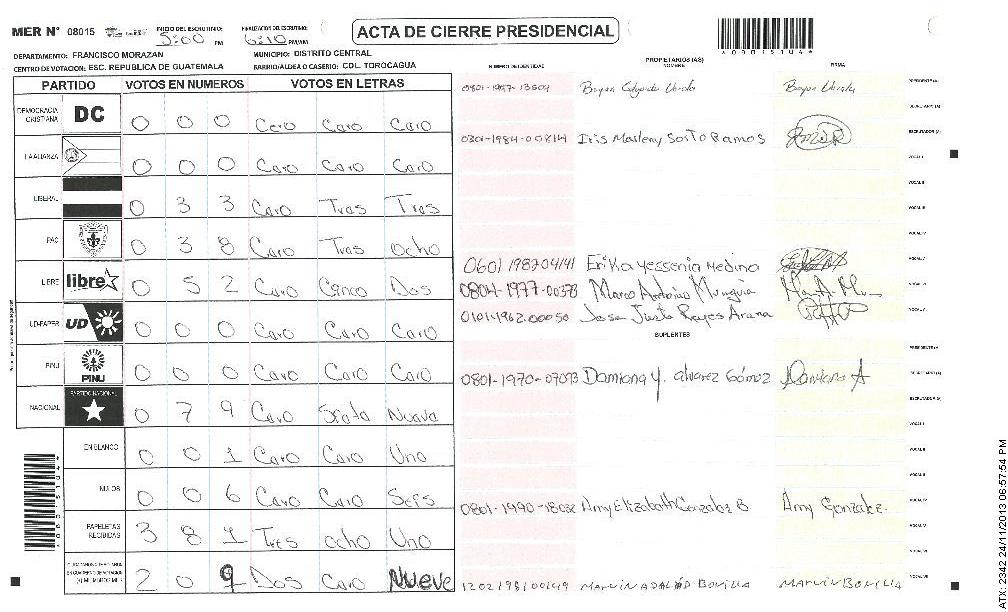 MER N° 08015 INICIO DEL ESCRUTINIO: 5:00 PM FINALIZACION DEL ESCRUTINIO: 6:10 PM/AM ACTA DE CIERRE PRESIDENCIAL
DEPARTAMENTO: FRANCISCO MORAZAN MUNICIPIO: DISTRITO CENTRAL
CENTRO DE VOTACION: ESC. REPUBLICA DE GUATEMALA BARRIO/ALDEA O CASERIO: COL. TOROCAGUA
PROPIETARIOS (AS)
NUMERO DE IDENTIDAD NOMBRE FIRMA
PARTIDO VOTOS EN NUMEROS VOTOS EN LETRAS
DEMOCRACIA CRISTIANA DC 0 0 0 Cero Cero Cero
LA ALIANZA 0 0 0 Cero Cero Cero
LIBERAL 0 3 3 Cero Tres Tres
PAC 0 3 8 Cero Tres ocho
LIBRE libre 0 5 2 Cero Cinco Dos
UD-FAPER UD 0 0 0 Cero Cero Cero
PINU PINU 0 0 0 Cero Cero Cero
NACIONAL PARTIDO NACIONAL 0 7 9 Cero Siete Nueve
EN BLANCO 0 0 1 Cero Cero Uno
NULOS 0 0 6 Cero Cero Seis
PAPELETAS RECIBIDAS 3 8 1 Tres ocho Uno
2 0 9 Dos Cero Nueve
PRESIDENTE (A)
SECRETARIO (A)
0301-1984-00814 Iris Marleny Sorto Ramos ESCRUTADOR (A)
VOCAL I
VOCAL II
VOCAL III
VOCAL IV
0601 1987 04141 Erika yessenia Medina VOCAL V
0804-1977-00373 Marco Antonio Munguia
0101-1962-00050 Jose Justo Reyes Arana
SUPLENTES
PRESIDENTE (A)
0801-1970-07093 Damiana y. alvarez Gómez Damiana A SECRETARIO (A)
ESCRUTADOR (A)
VOCAL I
VOCAL II
VOCAL III
Amy Elizabeth Gonzalez B Amy Gonzalez VOCAL IV
VOCAL V
VOCAL VI
1202198100149 MARVIN ADALID BONILLA MARVIN BONILLA
ATX 2342 24/11/2013 06:57:54 PM